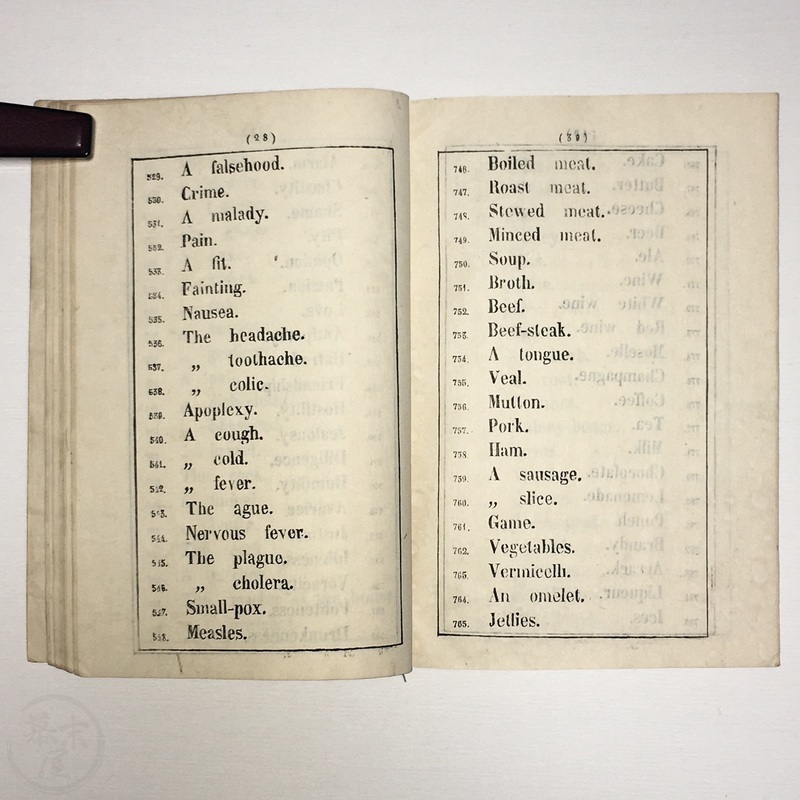 (28)
529. A falsehood.
530. Crime.
531. A malady.
532. Pain.
533. A fit.
534. Fainting.
535. Nausea.
536. The headache.
537. „ toothache.
538. „ colic.
539. Apoplexy.
540. A cough.
541. „ cold.
542. „ fever.
543. The ague.
544. Nervous fever.
545. The plague.
546. „ cholera.
547. Small-pox.
548. Measles.
(39)
746. Boiled meat.
747. Roast meat.
748. Stewed meat.
749. Minced meat.
750. Soup.
751. Broth.
752. Beef.
753. Beef-steak.
754. A tongue.
755. Veal.
756. Mutton.
757. Pork.
758. Ham.
759. A sausage.
760. „ slice.
761. Game.
762. Vegetables.
763. Vermicelli.
764. An omelet.
765. Jellies.